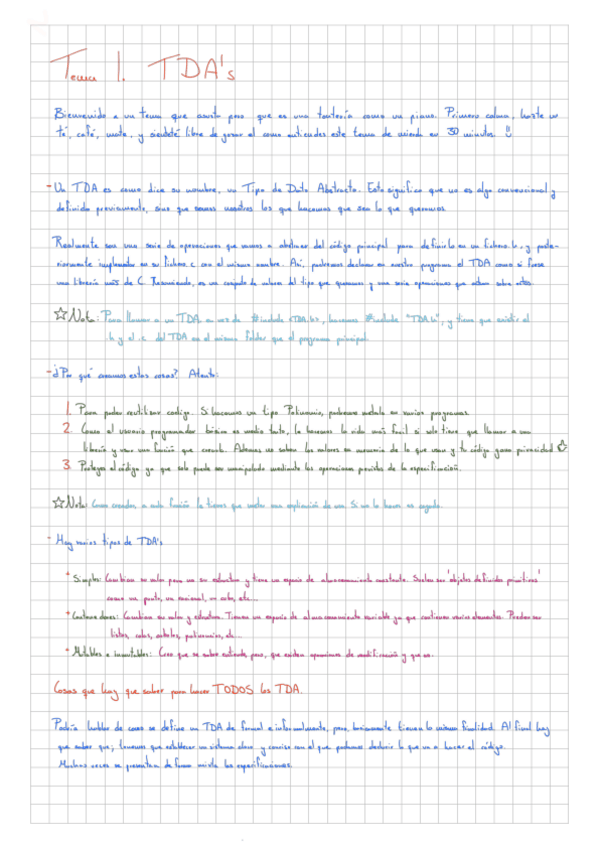 Tema 1. TDA's
Bienvenido a un tema que asusta pero que es una tontería como un piano. Primero calma, hazte un
té, café, mate, y siéntete libre de gozar el como entiendes este tema de mierda en 30 minutos. :)
- Un TDA es como dice su nombre, un Tipo de Dato Abstracto. Esto significa que no es algo convencional y
definido previamente, sino que somos nosotros los que hacemos que sea lo que queramos.
Realmente son una serie de operaciones que vamos a abstraer del código principal para definirlo en un fichero .h, y poste-
riormente implementar en su fichero .c con el mismo nombre. Así, podremos declarar en nuestro programa el TDA como si fuese
una librería más de C. Resumiendo, es un conjunto de valores del tipo que queramos y una serie operaciones que actúan sobre estos.
☆Nota: Para llamar a un TDA, en vez de #include <TDA.h>, hacemos #include "TDA.h", y tiene que existir el
.h y el .c del TDA en el mismo folder que el programa principal.
- ¿Por qué creamos estas cosas? Atento:
1. Para poder reutilizar codigo. Si hacemos un tipo Polinomio, podremos meterlo en varios programas.
2. Como el usuario programador básico es medio tonto, le hacemos la vida más facil si solo tiene que llamar a una
librería y usar una función que creaste. Ademas no saben los valores en memoria de lo que usan y tu código gana privacidad ☆
3. Proteges el código ya que solo puede ser manipulado mediante las operaciones previstas de la especificación.
☆Nota: Como creador, a cada función le tienes que soltar una explicación de uso. Si no lo haces es cagada.
- Hay varios tipos de TDA's
* Simples: Cambian su valor pero no su estructura y tiene un espacio de almacenamiento constante. Suelen ser 'objetos definidos primitivos'
como un punto, un racional, un cubo, etc...
* Contenedores: Cambian su valor y estructura. Tienen un espacio de almacenamiento variable ya que contienen varios elementos. Pueden ser
listas, colas, arboles, polinomios, etc...
* Mutables e inmutables: Creo que se sobre entiende, pero, que existen operaciones de modificación y que no.
Cosas que hay que saber para hacer TODOS los TDA.
Podría hablar de como se define un TDA de formal e informalmente, pero, basicamente tienen la misma finalidad. Al final hay
que saber que; tenemos que establecer un sistema claro y conciso con el que podamos deducir lo que va a hacer el código.
Muchas veces se presentan de forma mixta las especificaciones.